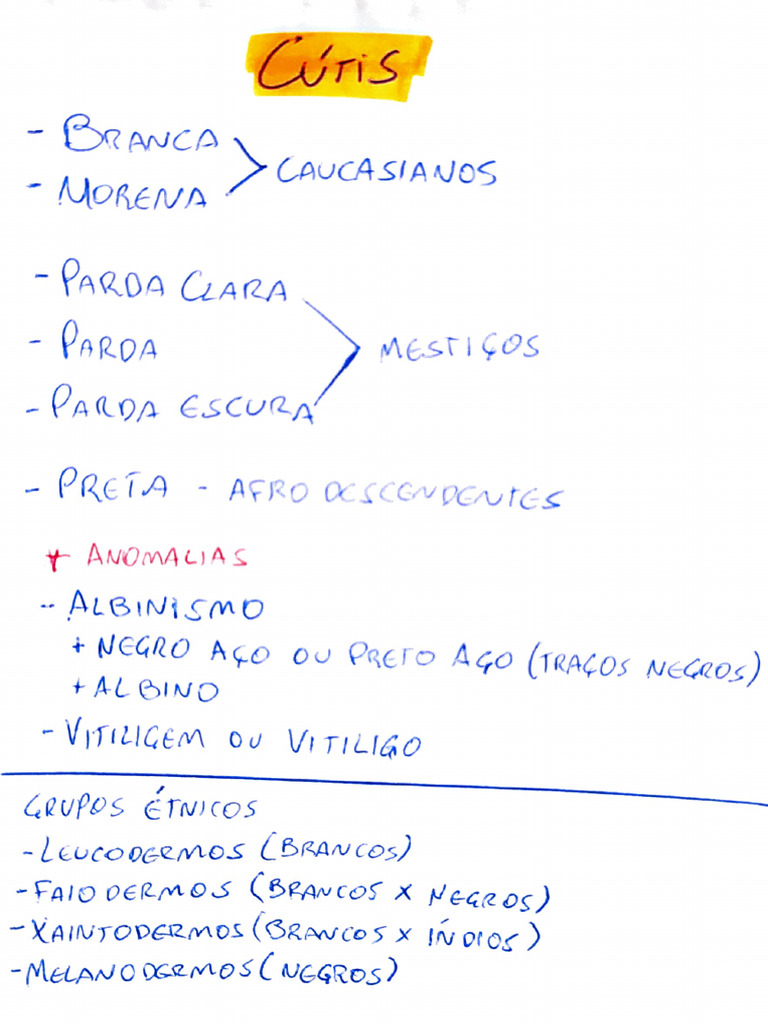 CÚTIS
- BRANCA
- MORENA
CAUCASIANOS
- PARDA CLARA
- PARDA
- PARDA ESCURA
MESTIÇOS
- PRETA - AFRO DESCENDENTES
+ ANOMALIAS
- ALBINISMO
+ NEGRO AÇO OU PRETO AÇO (TRAÇOS NEGROS)
+ ALBINO
- VITILIGEM OU VITILIGO
GRUPOS ÉTNICOS
- LEUCODERMOS (BRANCOS)
- FAIODERMOS (BRANCOS X NEGROS)
- XAINTODERMOS (BRANCOS X ÍNDIOS)
- MELANODERMOS (NEGROS)